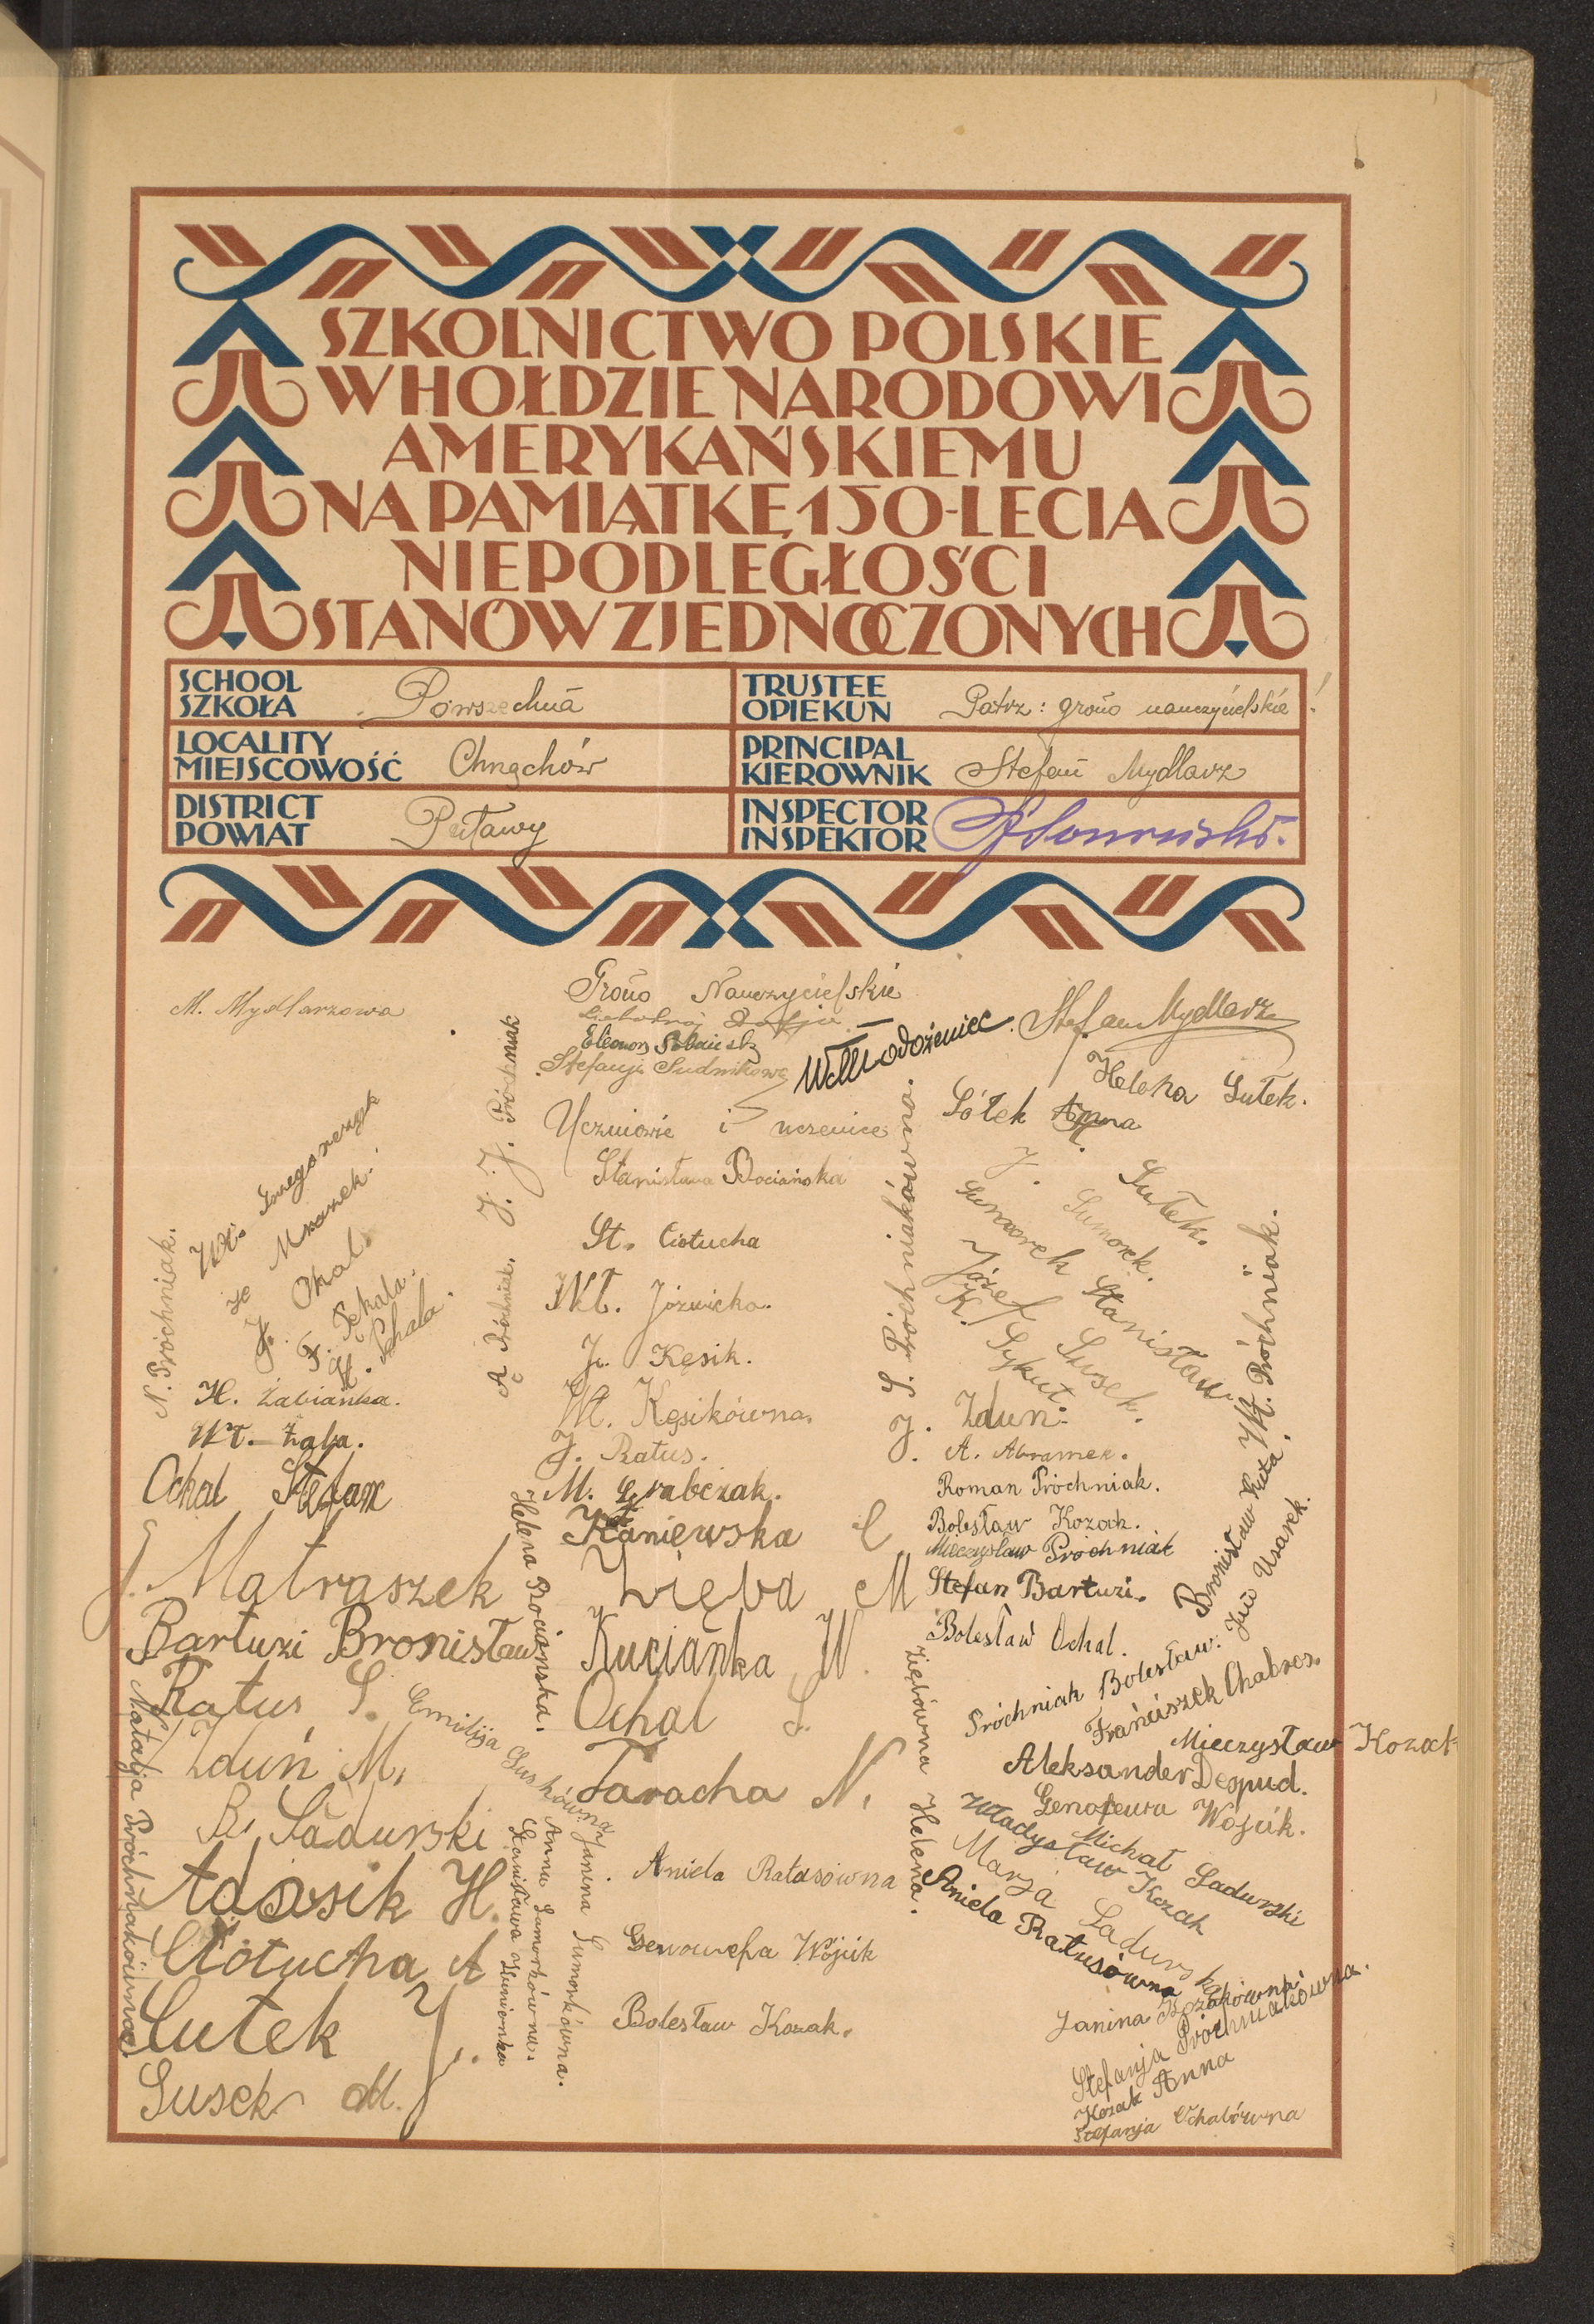 SZKOLNICTWO POLSKIE
W HOŁDZIE NARODOWI
AMERYKAŃSKIEMU
NA PAMIĄTKĘ 150-LECIA
NIEPODLEGŁOŚCI
STANÓW ZJEDNOCZONYCH
SCHOOL
SZKOŁA
Powszechna
TRUSTEE
OPIEKUN
Patrz: grono nauczycielskie!
LOCALITY
MIEJSCOWOŚĆ
Chrząchów
PRINCIPAL
KIEROWNIK
Stefan Mydlarz
DISTRICT
POWIAT
Puławy
INSPECTOR
INSPEKTOR
Grono Nauczycielskie
M. Mydlarzowa
Stefan Mydlarz
Zofja
Eleonora
Stefanja Sudnikowa
Włodożeniec
Helena Sułek.
Sółek Anna
Uczniowie i uczenice
Stanisława Bociańska
St. Ciotucha
Wł. Józwicka.
J. Kęsik.
Wł. Kęsikówna.
J. Ratus.
M. Grabczak.
Kaniewska C
Zięba M
Kucianka W.
Ochal S.
Taracha N.
Aniela Ratusówna
Genowefa Wójcik
Bolesław Kozak.
J. J. Próchniak
A. Próchniak.
Helena Bociańska.
N. Próchniak.
H. Mrozek.
J. Ochal
F. Pękala.
H. Pękala.
H. Żabianka.
Wł. Żaba.
Ochal Stefan
J. Matraszek
Bartuzi Bronisław
Ratus S.
Zduń M.
R. Sadurski
Adasik H.
Ciotucha A
Sułek J.
Susek M.
Natalja Próchniakówna
Emilija Guskówna
Anna Sumorkówna.
Stanisława
Janina Sumorkówna.
S. Próchniakówna.
J. Sułek.
Sumorek.
Sumorek Stanisław
Józef Susek.
K. Sykut.
J. Zduń.
A. Abramek.
Roman Próchniak.
Bolesław Kozak.
Mieczysław Próchniak
Stefan Bartuzi.
Bolesław Ochal.
Wł. Próchniak.
Bronisław Ruta.
Jan Usarek.
Próchniak Bolesław.
Franciszek Chabros.
Mieczysław Kozak
Aleksander Degpud.
Genofewa Wójcik.
Michał Sadurski
Władysław Kozak
Marja Sadurska
Aniela Ratusówna
Ziębówna Helena.
Janina Kozakówna
Stefanja Próchniakówna.
Kozak Anna
Stefanja Ochalówna